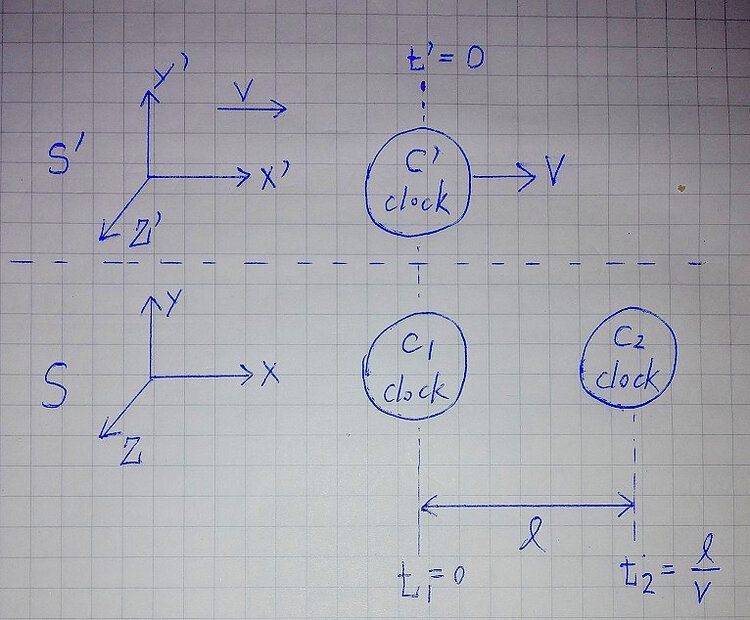 t' = 0
Y'
V
S'
X'
Z'
C'
clock
V
Y
S
X
Z
C1
clock
C2
clock
l
t1=0
t2 = l/V